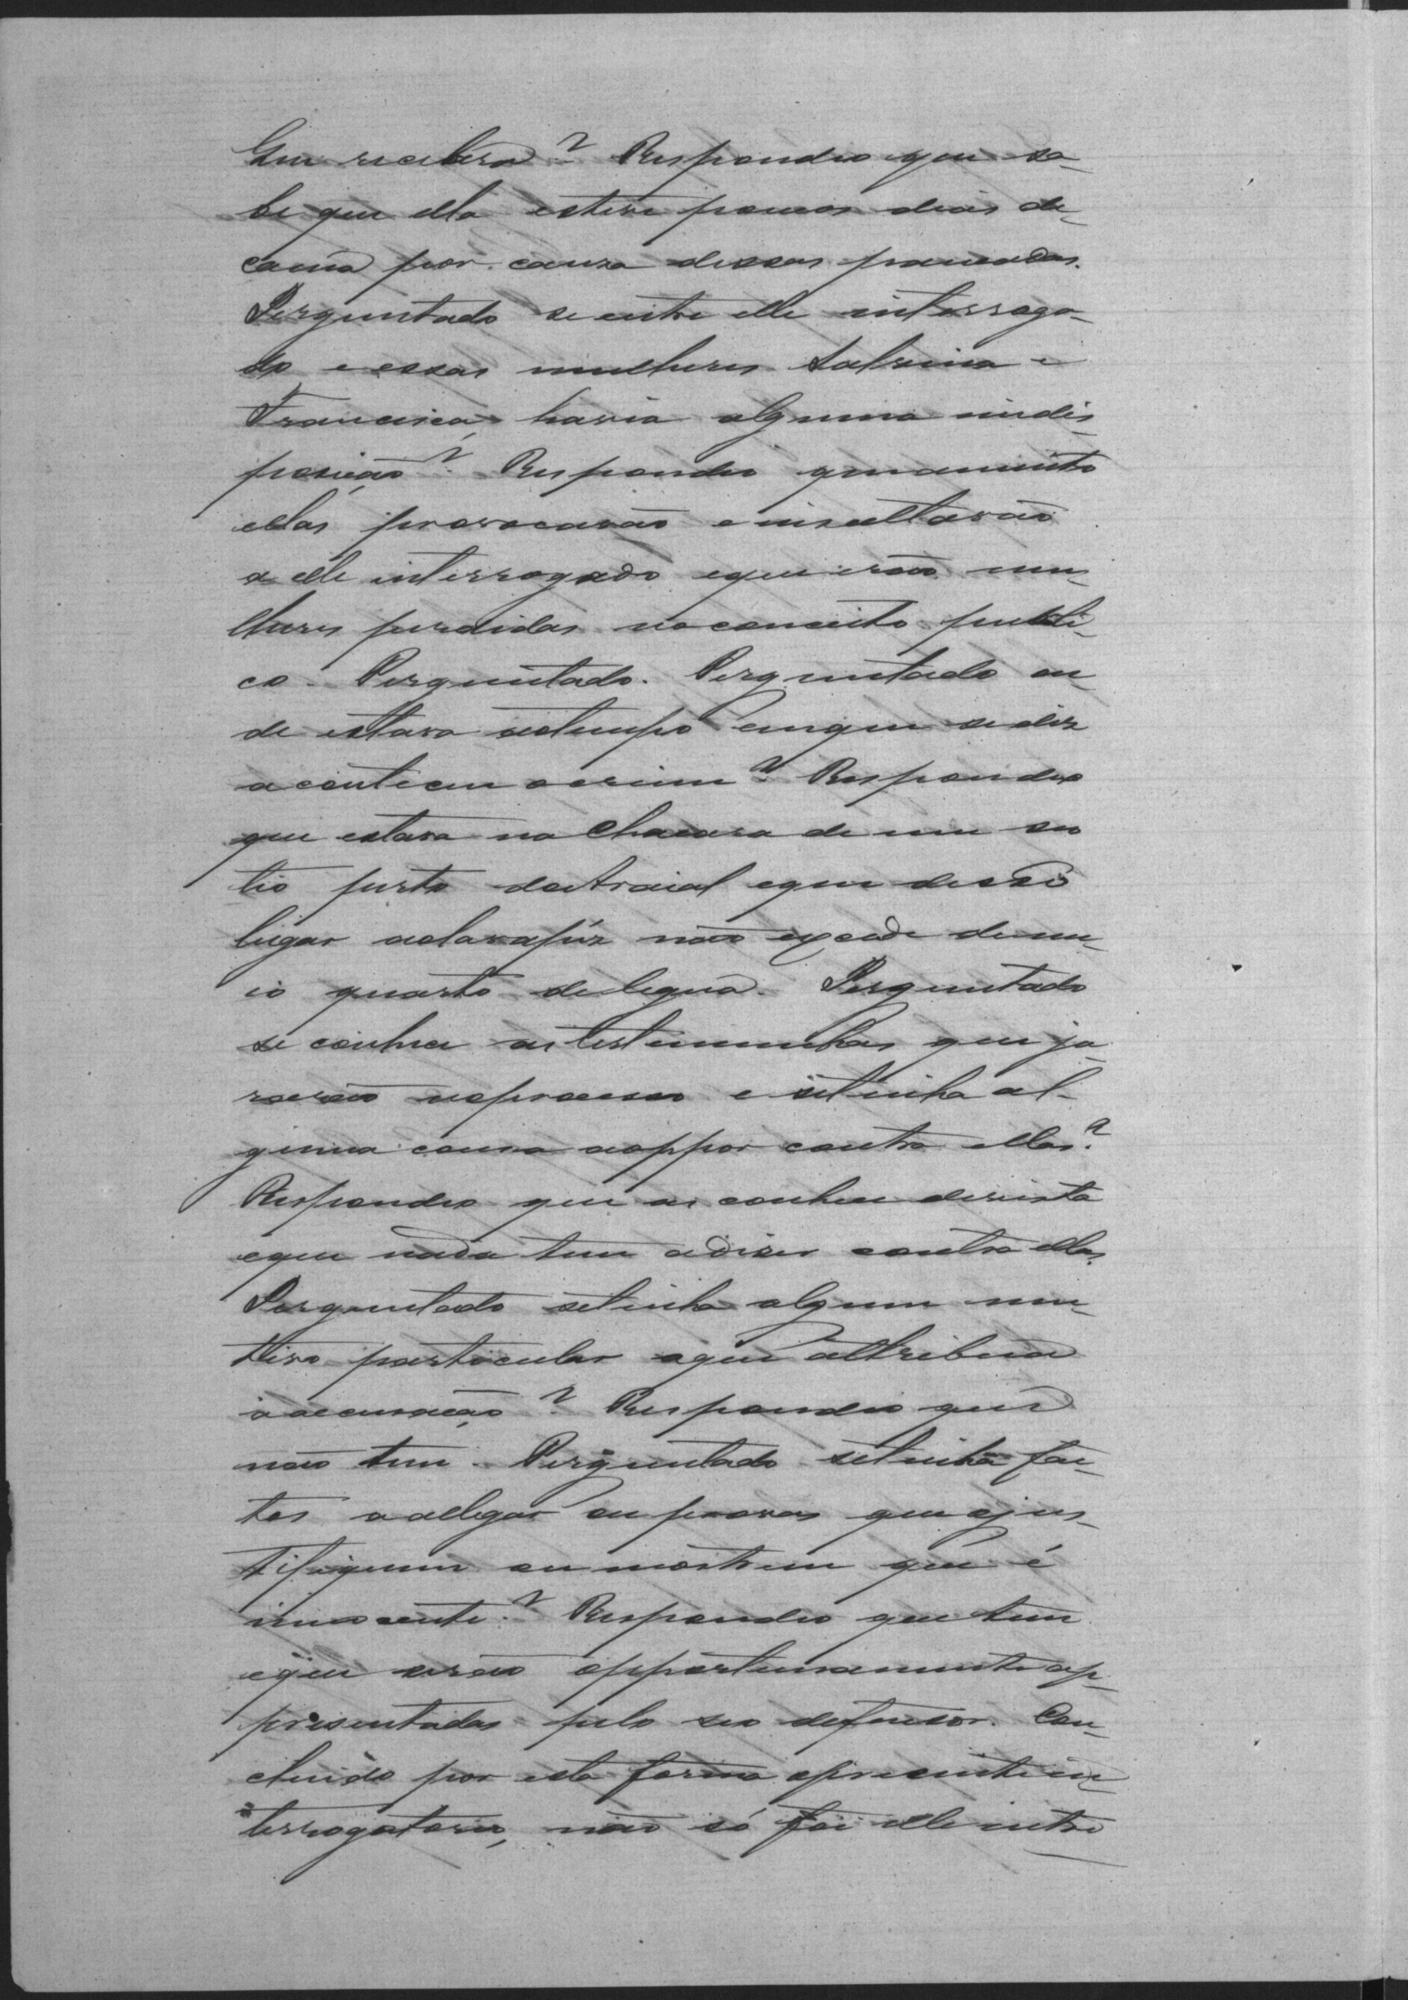 que recebera? Respondeo que sa-
be que ella esteve poucos dias de
cama por causa dessas pancadas.
Perguntado se entre elle interroga-
do e essas mulheres Sabrina e
Francisca, havia alguma indis-
posição? Respondeo que
ellas provocarão e insultarão
a elle interrogado e que erão mu-
lheres perdidas no conceito publi-
co. Perguntado. Perguntado on-
de estava ao tempo em que se diz
aconteceu o crime? Respondeo
que estava na chacara de um seu
tio perto do Arraial e que desse
lugar não excede de me-
io quarto de legua. Perguntado
se conhece as testemunhas que ju-
rarão no processo e se tinha al-
guma cousa a oppor contra ellas?
Respondeo que as conhece de vista
e que nada tem a dizer contra ellas.
Perguntado se tinha algum mo-
tivo particular a que attribua
a accusação? Respondeo que
não tem. Perguntado se tinha fac-
tos a allegar ou provas que o jus-
tifiquem ou mostrem que é
innocente? Respondeo que tem
e que serão opportunamente ap-
presentadas pelo seo defensor. Con-
cluido por esta forma o presente in-
terrogatorio, não só foi elle intro